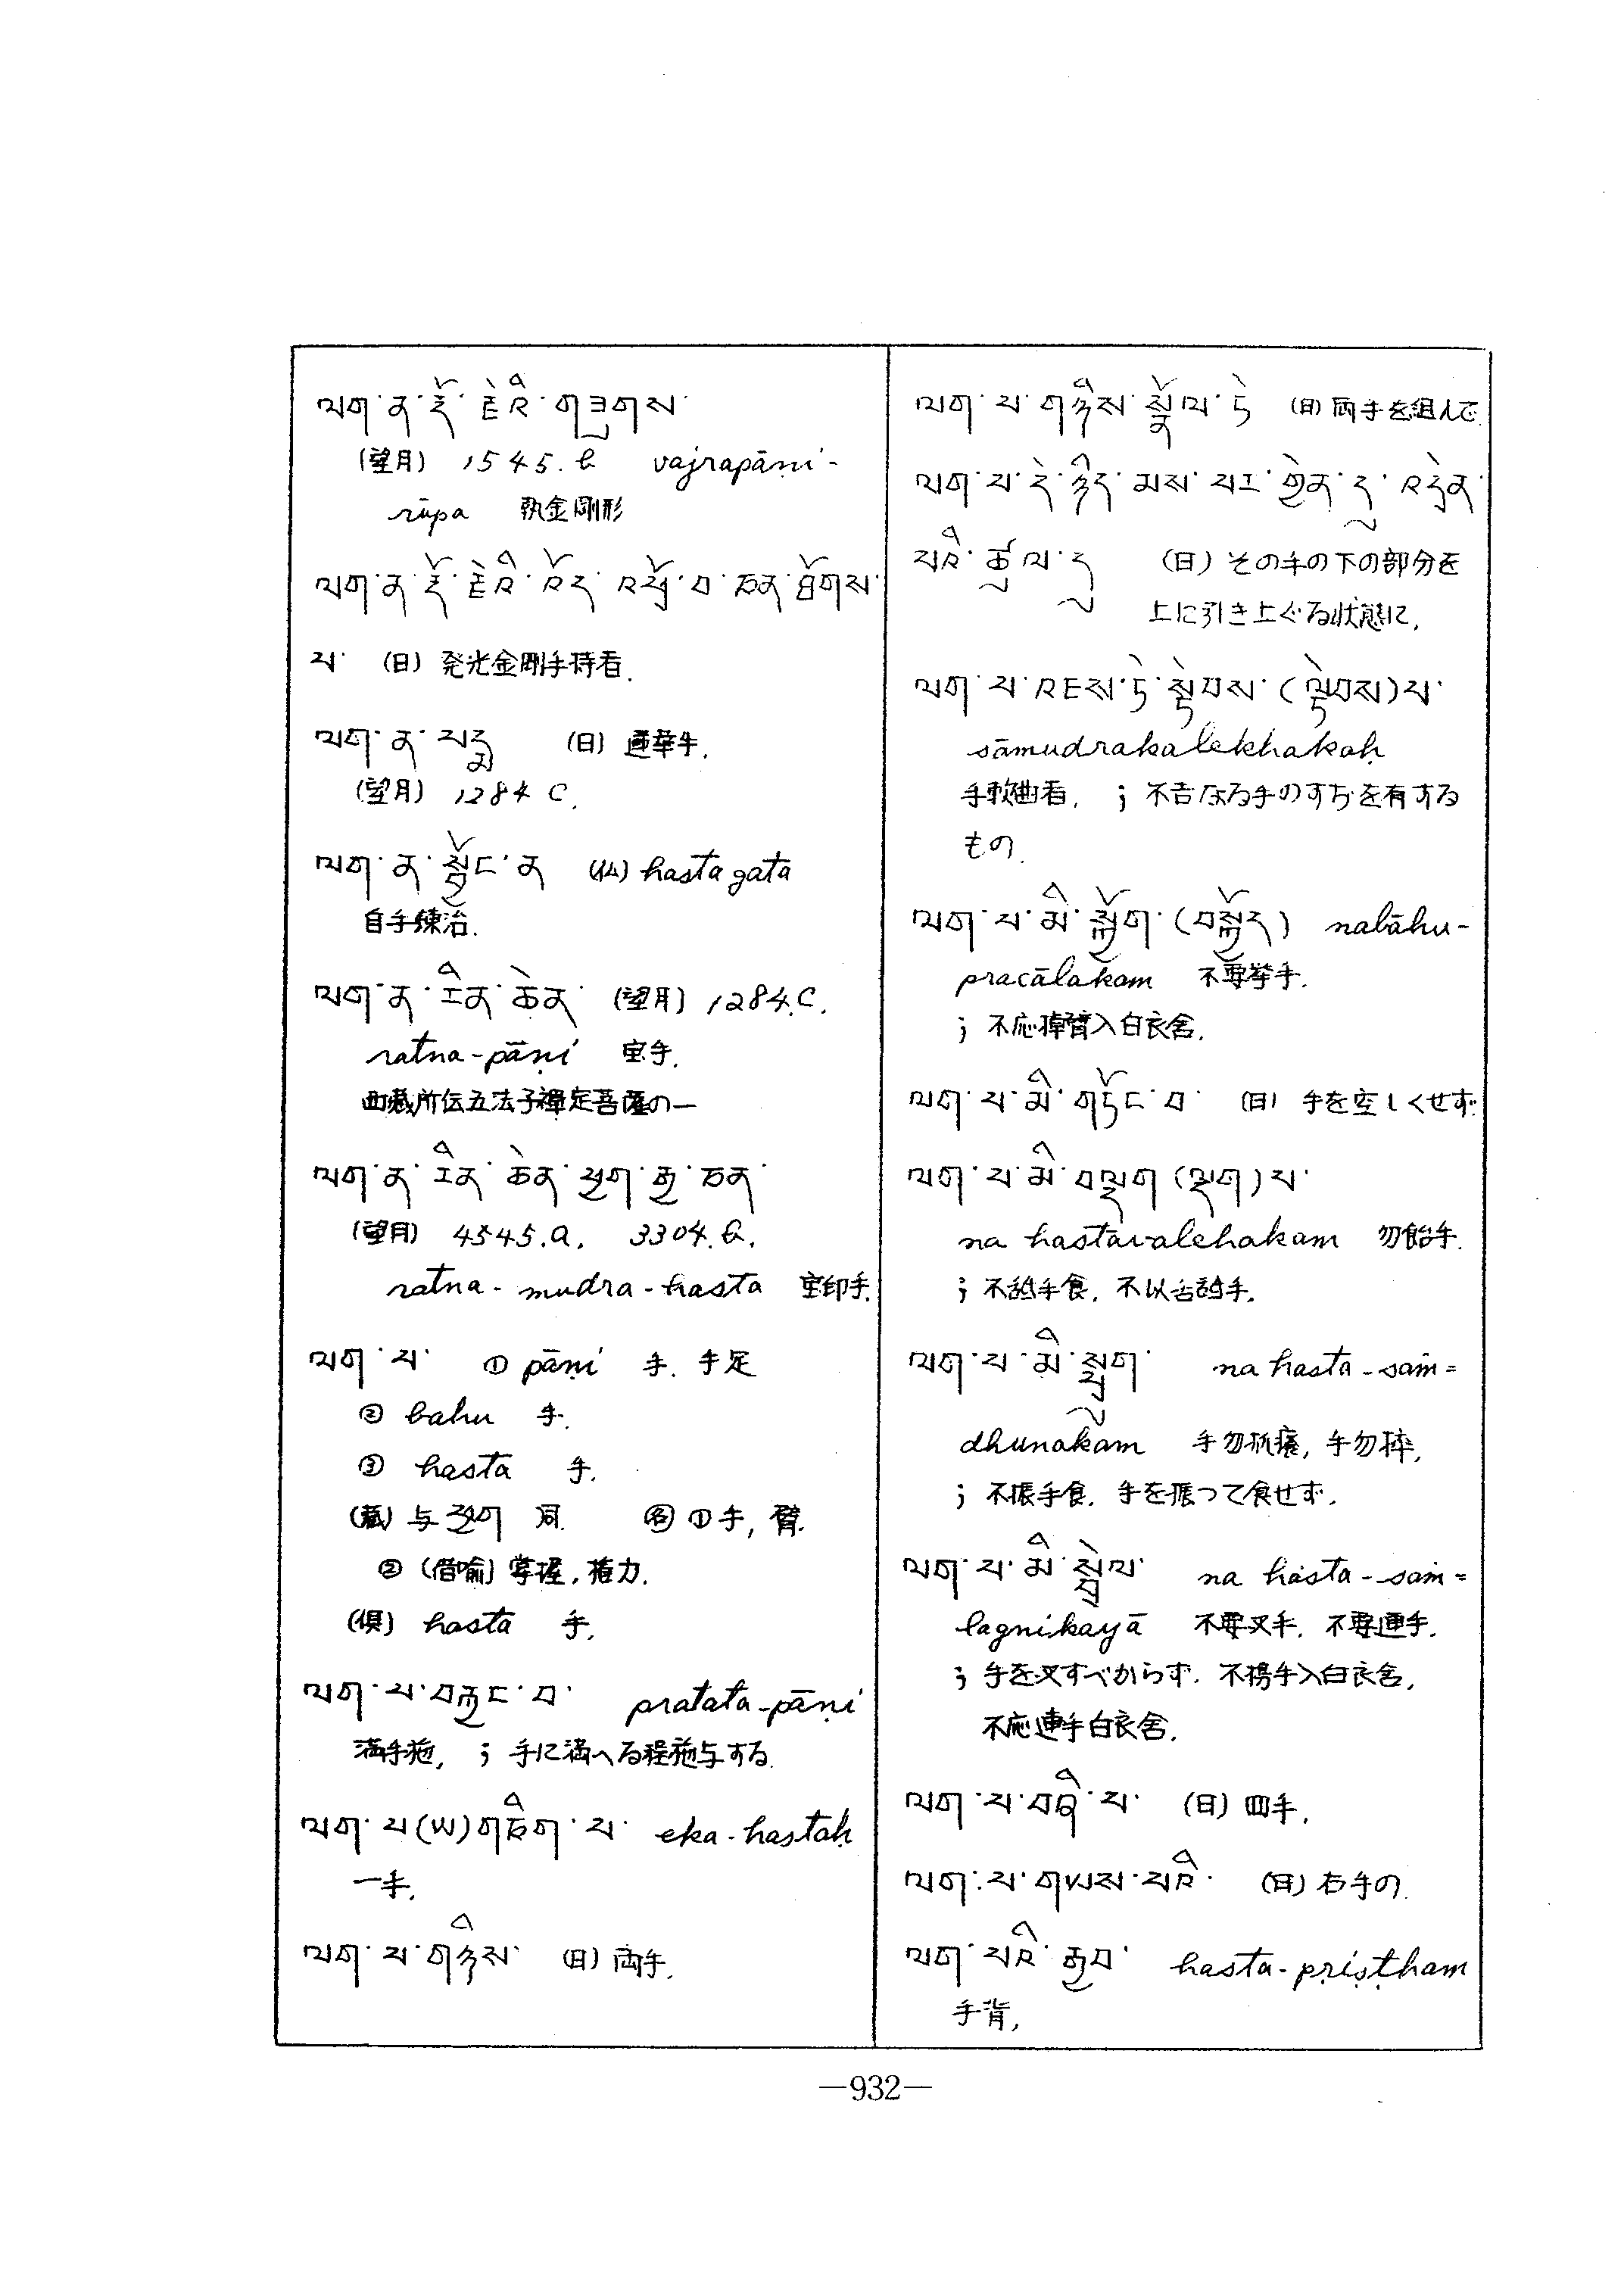 ལག་ན་རྡོ་རྗེའི་གཟུགས་
(望月) 1545.b vajrapāṇi-
rūpa 執金剛形
ལག་ན་རྡོ་རྗེའི་འོད་འཕྲོ་བ་ཅན་ཐོགས་
པ་ (日) 発光金剛手持者.
ལག་ན་པདྨ (日) 蓮華手.
(望月) 1284 C.
ལག་ན་སྦྱོང་ན (仏) hastagata
自手錬治.
ལག་ན་རིན་ཆེན་ (望月) 1284.C.
ratna-pāṇi 宝手.
西蔵所伝五法子禅定菩薩の一
ལག་ན་རིན་ཆེན་ཕྱག་རྒྱ་ཅན་
(望月) 4545.a, 3304.b,
ratna-mudra-hasta 宝印手.
ལག་པ་ ① pāṇi 手. 手足
② bahu 手.
③ hasta 手.
(蔵) 与 ལག 同. ① 手, 臂.
② (借喩) 掌握, 権力.
(倶) hasta 手.
ལག་པ་བརྐྱང་བ་ pratata-pāṇi
満手施, ; 手に満へる程施与する.
ལག་པ(ཡ)གཅིག་པ་ eka-hastaḥ
一手.
ལག་པ་གཉིས་ (日) 両手.
ལག་པ་གཉིས་སྣོལ་ཏེ (日) 両手を組んで
ལག་པ་དེ་ཉིད་མས་པར་གྱེན་དུ་འདྲེན་
པའི་ཚུལ་དུ (日) その手の下の部分を
上に引き上ぐる状態に,
ལག་པ་འཇས་ཏེ་སྟེབས་(ལྟེབས)པ་
sāmudrakalekhakaḥ
手軟曲者, ; 不吉なる手のすぢを有する
もの.
ལག་པ་མི་སྐྱོག་(བསྐྱོད) nabāhu-
pracālakam 不要挙手.
; 不応掉臂入白衣舎.
ལག་པ་མི་གཏོང་བ་ (日) 手を空しくせず.
ལག་པ་མི་བལྡག(ལྡག)པ་
na hastāvalehakam 勿飴手.
; 不舐手食, 不以舌舐手.
ལག་པ་མི་སྤྲུག་ na hasta-saṁ=
dhunakam 手勿抓癢, 手勿捽,
; 不振手食, 手を振つて食せず.
ལག་པ་མི་སྦྲེལ་ na hasta-saṁ=
lagnikayā 不要叉手. 不要連手.
; 手を叉すべからず. 不携手入白衣舎,
不応連手白衣舎.
ལག་པ་བཞི་པ་ (日) 四手,
ལག་པ་གཡས་པའི་ (日) 右手の.
ལག་པའི་རྒྱབ་ hasta-pṛiṣṭham
手背,
—932—